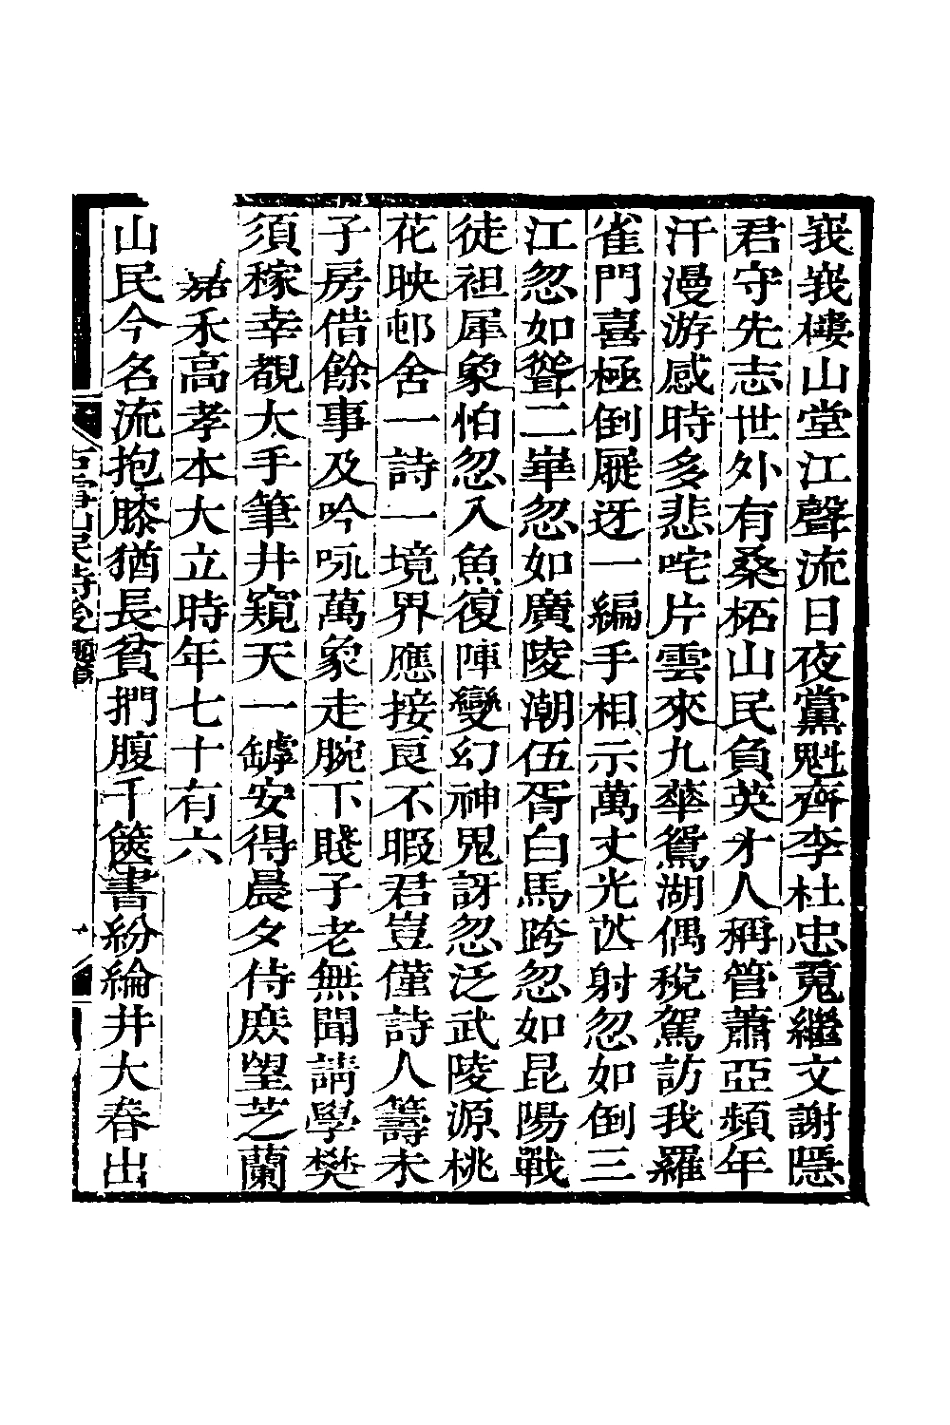 峩峩樓山堂江聲流日夜黨魁齊李杜忠䰟繼文謝隱
君守先志世外有桑柘山民負英才人稱管蕭亞頻年
汗漫游感時多悲咤片雲來九華鴛湖偶稅駕訪我羅
雀門喜極倒屣迓一編手相示萬丈光芒射忽如倒三
江忽如聳二崋忽如廣陵潮伍胥白馬跨忽如昆陽戰
徒袒犀象怕忽入魚復陣變幻神鬼訝忽泛武陵源桃
花映邨舍一詩一境界應接良不暇君豈僅詩人籌未
子房借餘事及吟咏萬象走腕下賤子老無聞請學樊
須稼幸覩大手筆井窺天一罅安得晨夕侍庻望芝蘭
嘉禾高孝本大立時年七十有六
山民今名流抱膝猶長貧捫腹千篋書紛綸井大春出
民詩後